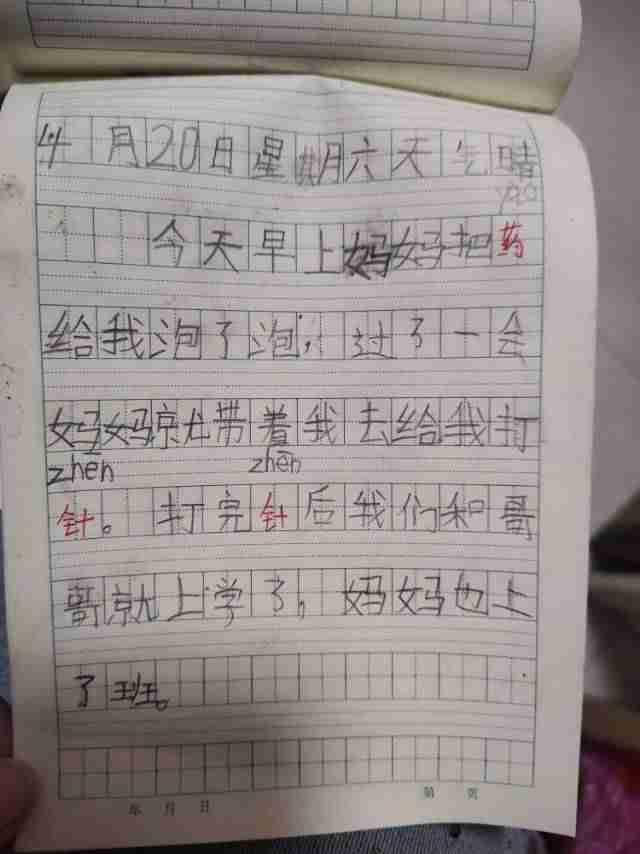 4月20日星期六天气晴
yao
今天早上妈妈把药
给我泡了泡，过了一会
妈妈就带着我去给我打
zhēn zhēn
针。打完针后我们和哥
哥就上学了，妈妈也上
了班。
年 月 日 第 页